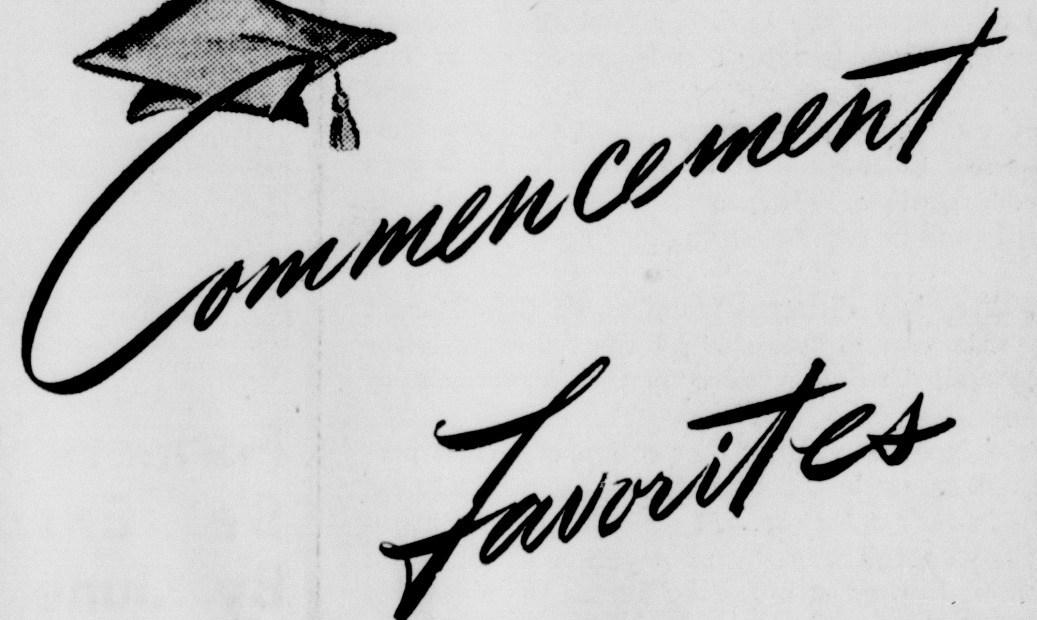 Commencement
Favorites